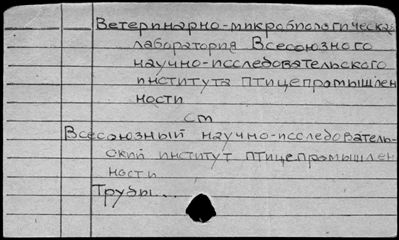 Ветеринарно-микробиологическая
лаборатория Всесоюзного
научно-исследовательского
института птицепромышлен
ности
см
Всесоюзный научно-исследователь-
ский институт птицепромышлен
ности
Труды...